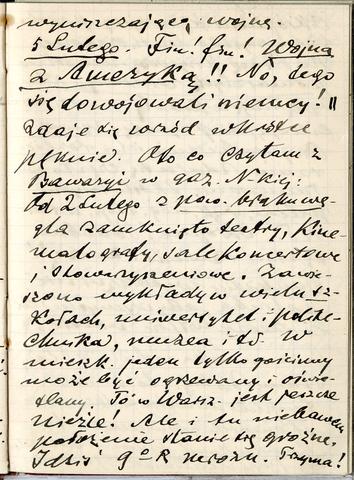 wyniszczającą wojnę.
5 Lutego. Fiu! fiu! Wojna
z Ameryką!! No, tego
się dowojowali niemcy!
Zdaje się wrzód wkrótce
pęknie. Oto co czytam z
Bawaryi w gaz. N-kiej:
Od 2 Lutego z pow. braku wę-
gla zamknięto teatry, Kine-
matografy, sale koncertowe
i stowarzyszeniowe. Zawie-
szono wykłady w wielu sz-
kołach, uniwersytet i polite-
chnika, muzea i t.d. W
mieszk. jeden tylko gościnny
może być ogrzewany i oświe-
tlany. To w Warsz. jest jeszcze
nieźle! Ale i tu niebawem
położenie stanie się groźne.
I dziś 9° R mrozu. Trzyma!